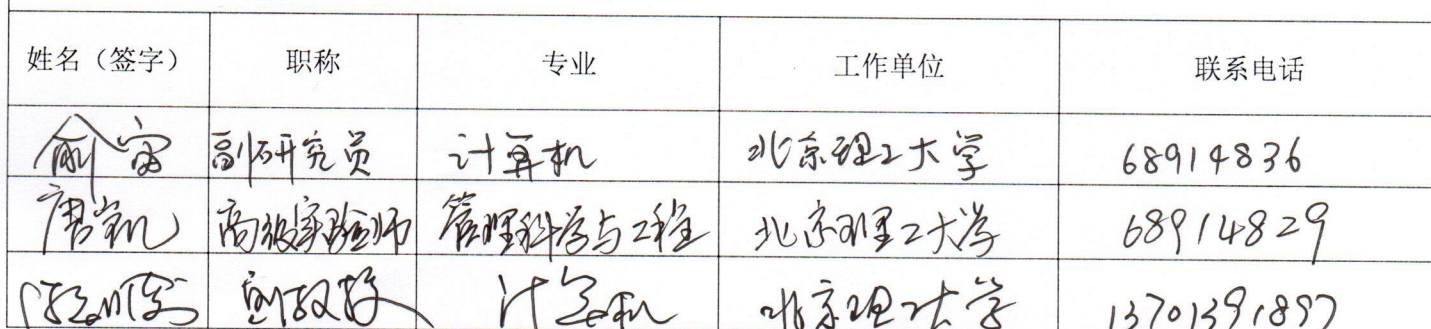 姓名（签字） 职称 专业 工作单位 联系电话
俞宙 副研究员 计算机 北京理工大学 68914836
唐凯 高级实验师 管理科学与工程 北京理工大学 68914829
副教授 计算机 北京理工大学 13701391897